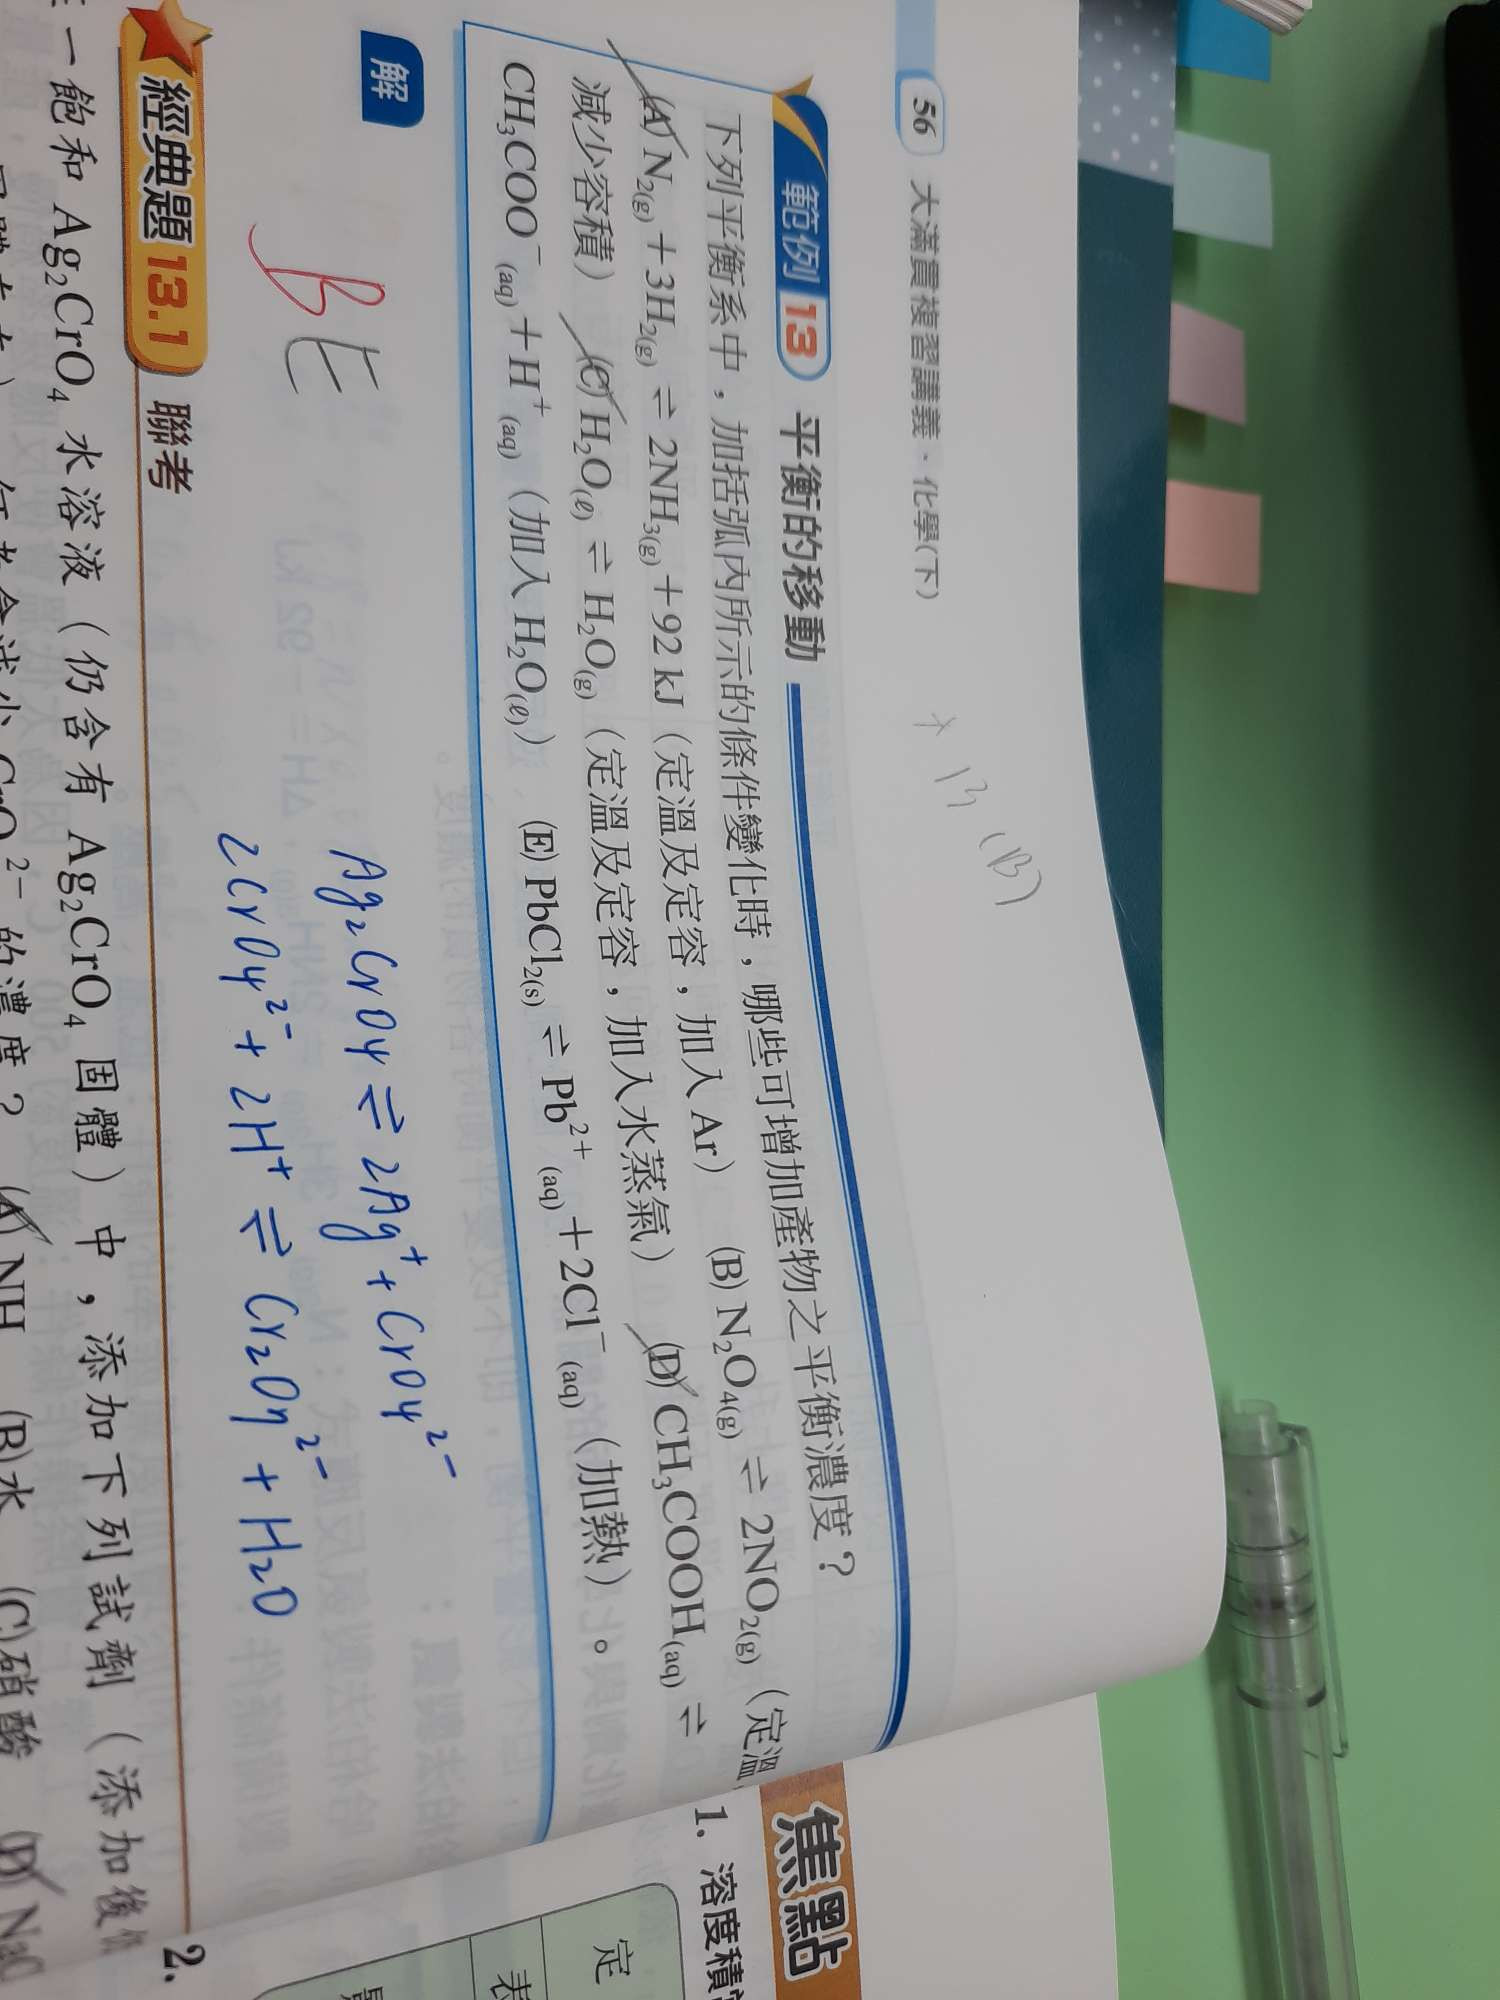 56 大滿貫複習講義·化學(下)
* 13 (B)
範例 13 平衡的移動
下列平衡系中，加括弧內所示的條件變化時，哪些可增加產物之平衡濃度？
(A) N₂(g)＋3H₂(g) ⇌ 2NH₃(g)＋92 kJ（定溫及定容，加入 Ar） (B) N₂O₄(g) ⇌ 2NO₂(g)（定溫
減少容積） (C) H₂O(ℓ) ⇌ H₂O(g)（定溫及定容，加入水蒸氣） (D) CH₃COOH(aq) ⇌
CH₃COO⁻(aq)＋H⁺(aq)（加入 H₂O(ℓ)） (E) PbCl₂(s) ⇌ Pb²⁺(aq)＋2Cl⁻(aq)（加熱）。
解
BE
Ag₂CrO₄ ⇌ 2Ag⁺ + CrO₄²⁻
2CrO₄²⁻ + 2H⁺ ⇌ Cr₂O₇²⁻ + H₂O
經典題 13.1 聯考
一飽和 Ag₂CrO₄ 水溶液（仍含有 Ag₂CrO₄ 固體）中，添加下列試劑（添加後
減少 CrO₄²⁻ 的濃度？ (A) NH (B)水 (C)硝酸 (D) NaC
焦點
1. 溶度積
定
表
2.